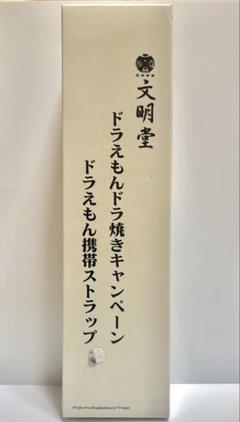 文明堂
ドラえもんドラ焼きキャンペーン
ドラえもん携帯ストラップ